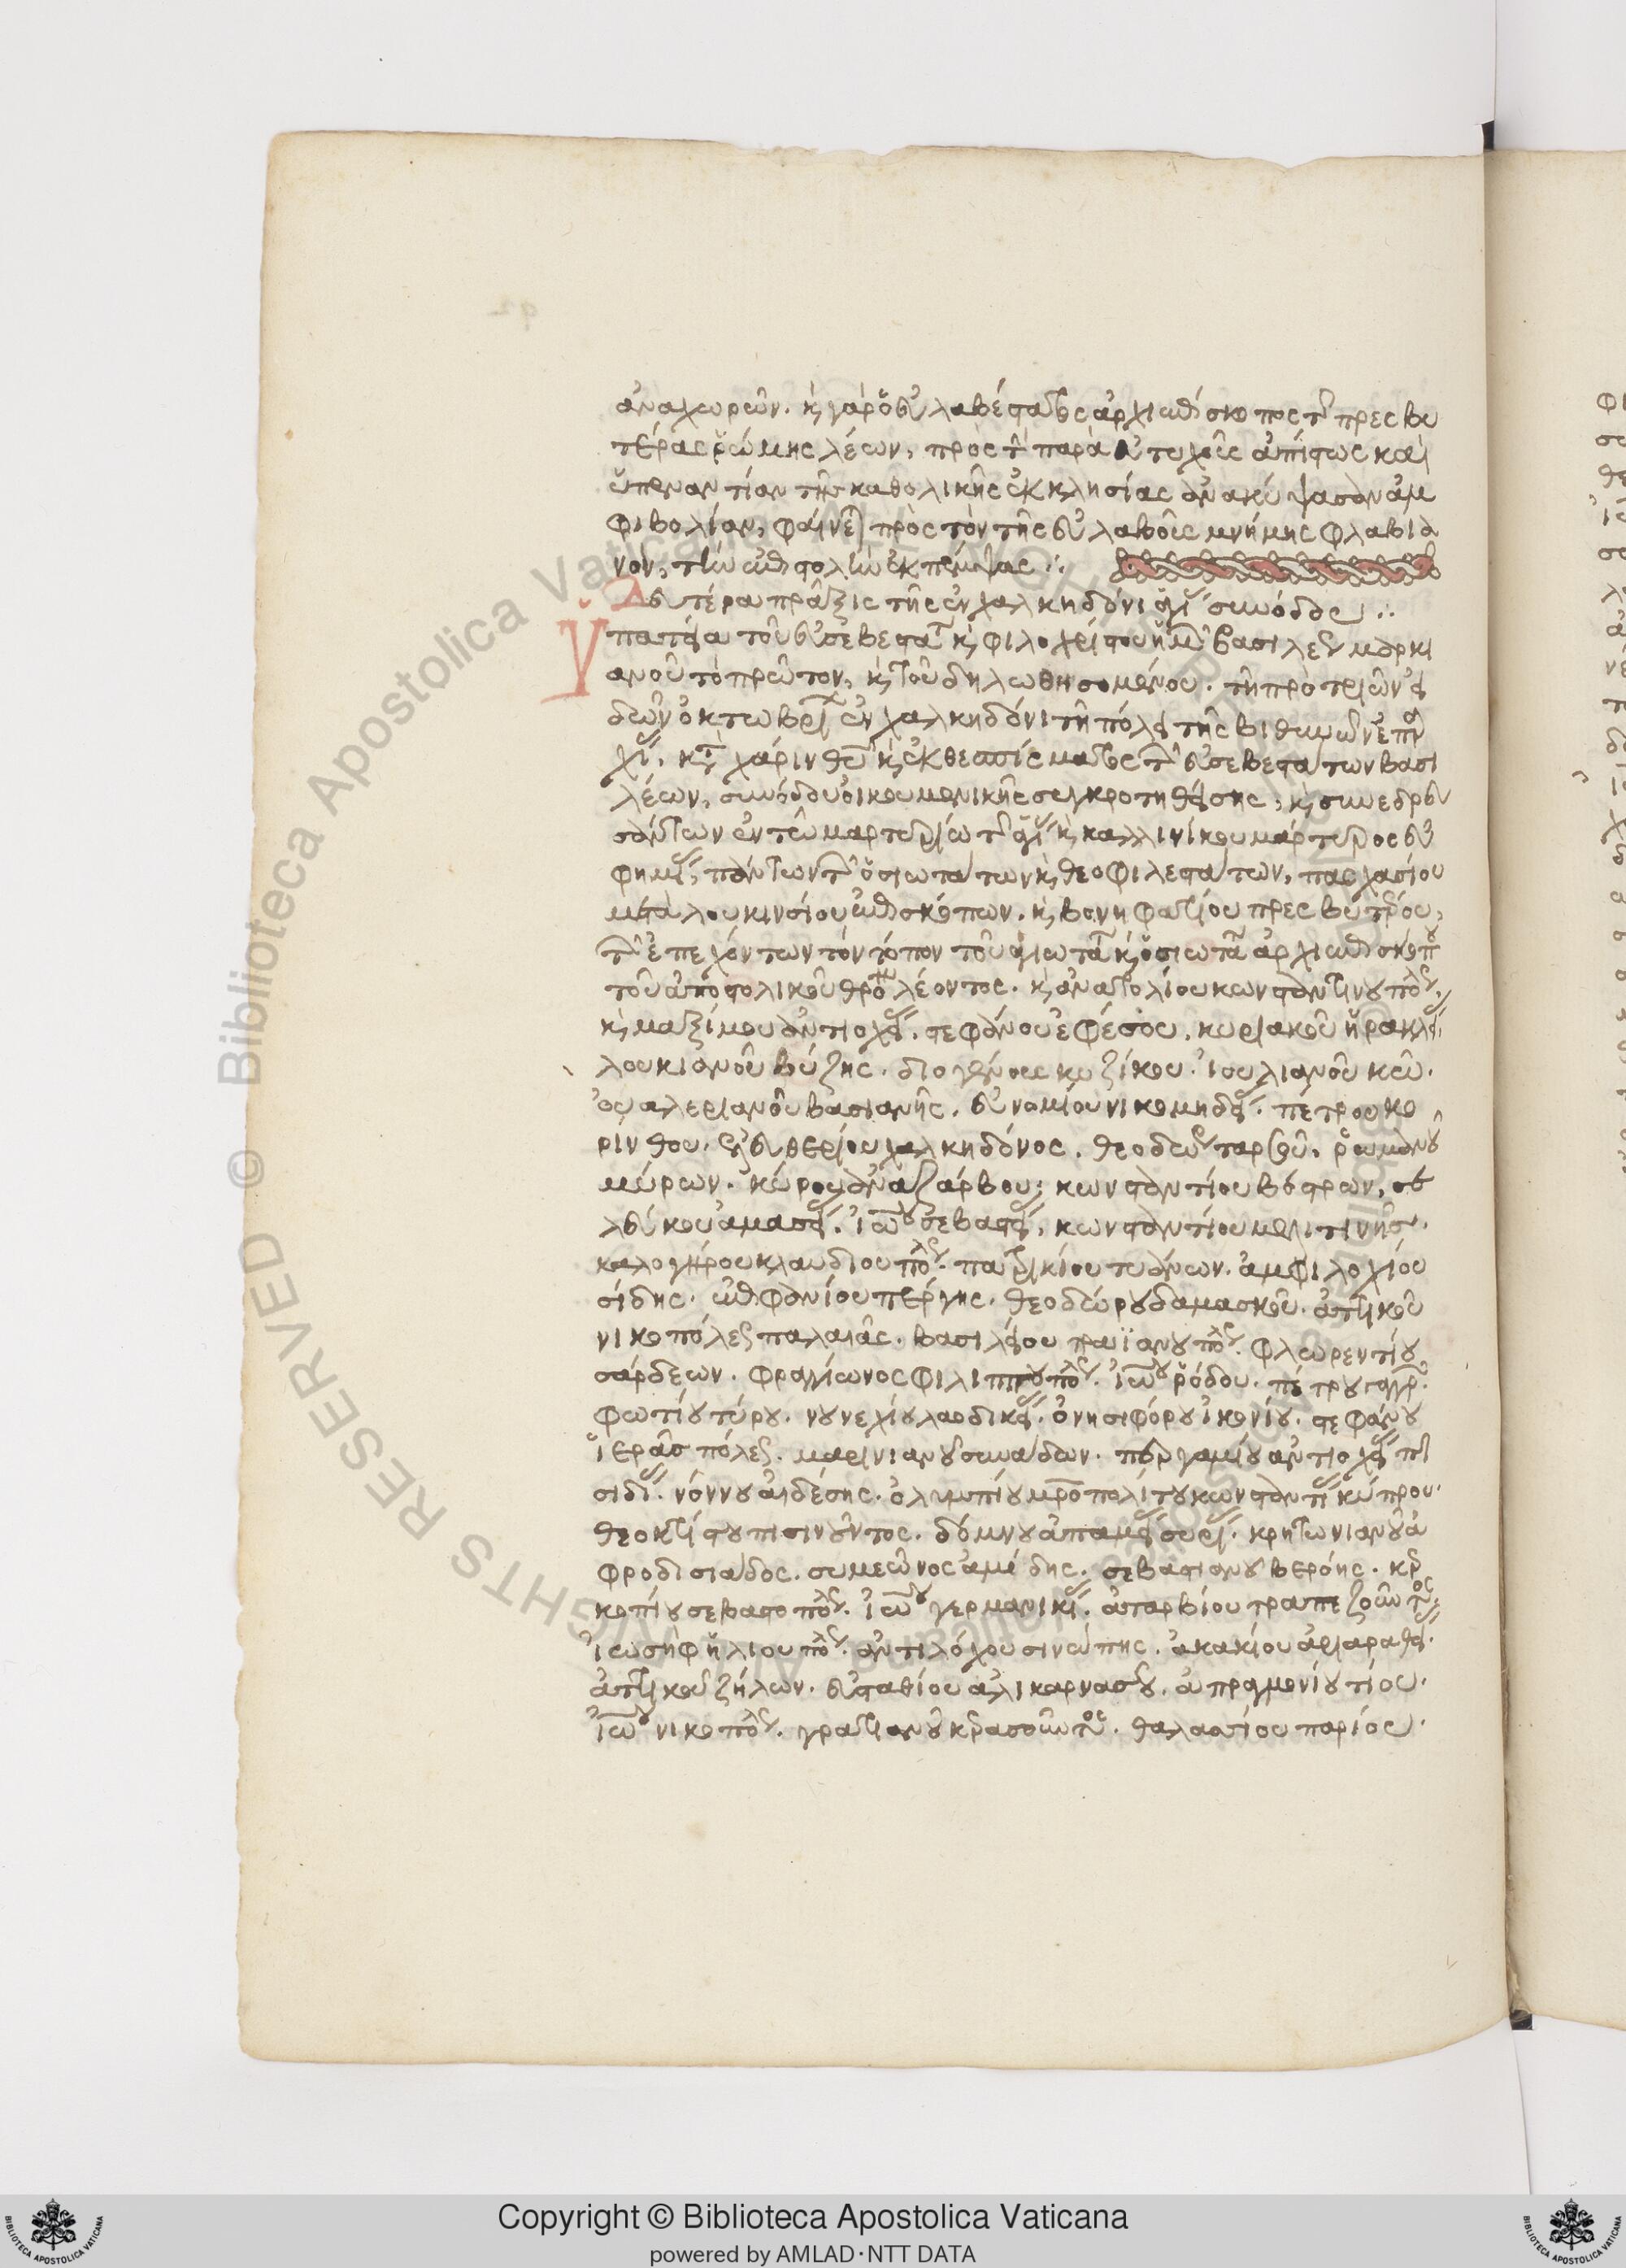 ἀναχωρῶν. κ γὰρ ὁ εὐλαβέστατος ἀρχιεπίσκοπος τῆς πρεσβυ
τέρας ῥώμης λέων, πρὸς τὴν παρὰ εὐτυχοῦς ἀπίστως καὶ
ὑπεναντίαν τῆς καθολικῆς ἐκκλησίας ἀνακύψασαν ἀμ
φιβολίαν, φαίνεται πρὸς τὸν τῆς εὐλαβοῦς μνήμης φλαβια
νὸν, τὴν ἐπιστολὴν ἐκπέμψας ∴
Δευτέρα πρᾶξις τῆς ἐν χαλκηδόνι ἁγί συνόδου ∴
Ὑπατεία τοῦ εὐσεβεστά κ φιλοχρίστου ἡμῶν βασιλέως μαρκι
ανοῦ τὸ πρῶτον, κ τοῦ δηλωθησομένου. τῇ πρὸ τριῶν εἰ
δῶν ὀκτωβρί ἐν χαλκηδόνι τῇ πόλει τῆς βιθυνῶν ἐπαρ
χί, κτ χάριν θεοῦ κ ἐκ θεσπίσματος τῶν εὐσεβεστάτων βασι
λέων, συνόδου οἰκουμενικῆς συγκροτηθείσης, κ συνεδρευ
σάντων ἐν τῷ μαρτυρίω τῆς ἁγί κ καλλινίκου μάρτυρος εὐ
φημί, πάντων τῶν ὁσιωτάτων κ θεοφιλεστάτων, πασχασίου
μετὰ λουκινσίου ἐπισκόπων. κ βονηφατίου πρεσβυτέρου,
τῶν ἐπεχόντων τὸν τόπον τοῦ ἁγιωτά κ ὁσιωτά ἀρχιεπισκόπου
τοῦ ἀποστολικοῦ θρό λέοντος. κ ἀνατολίου κωνσταντινουπόλ
κ μαξίμου ἀντιοχεί. στεφάνου ἐφέσου. κυριακοῦ ἡρακλεί
λουκιανοῦ βύζης. διογένους κυζίκου. ἰουλιανοῦ κῶ.
οὐαλεριανοῦ βασιανῆς. εὐνομίου νικομηδεί. πέτρου κο
ρίνθου. ἐλευθερίου χαλκηδόνος. θεοδώρ ταρσοῦ. ῥωμανοῦ
μύρων. κύρου ἀναζάρβου. κωνσταντίου βόστρων. σε
λεύκου ἀμασεί. ἰω σεβαστεί. κωνσταντίου μελιτινῆς.
καλογήρου κλαυδιουπόλ. πατρικίου τυάνων. ἀμφιλοχίου
σίδης. ἐπιφανίου πέργης. θεοδώρου δαμασκοῦ. ἀττικοῦ
νικοπόλεως παλαιᾶς. βασιλείου τραϊανουπόλ. φλωρεντίου
σάρδεων. φραγκίωνος φιλιππουπόλ. ἰω ῥόδου. πέτρου γαγγρ
φωτίου τύρου. νουνεχίου λαοδικεί. ὀνησιφόρου ἰκονίου. στεφάνου
ἱερᾶς πόλεως. μαρινιανοῦ συνάδων. περγαμίου ἀντιοχεί πι
σιδί. νόννου αἰδέσης. ὀλυμπίου μητροπολίτου κωνσταντί κύπρου.
θεοκτίστου πισινοῦντος. δόμνου ἀπαμεί συρί. κρητωνιανοῦ ἀ
φροδισιάδος. συμεῶνος ἀμίδης. σεβαστιανοῦ βερόης. κε
κροπίου σεβαστοπόλ. ἰω γερμανικί. ἀταρβίου τραπεζοῦντος
ἰωσὴφ ἡλιουπόλ. ἀντιλόχου σινώπης. ἀκακίου ἀριαραθεί.
ἀττικοῦ ζήλων. εὐσταθίου ἁλικαρνασοῦ. ἀπραγμονίου τίου.
ἰω νικοπόλ. γρατιανοῦ κερασοῦντος. θαλασσίου παρίου.